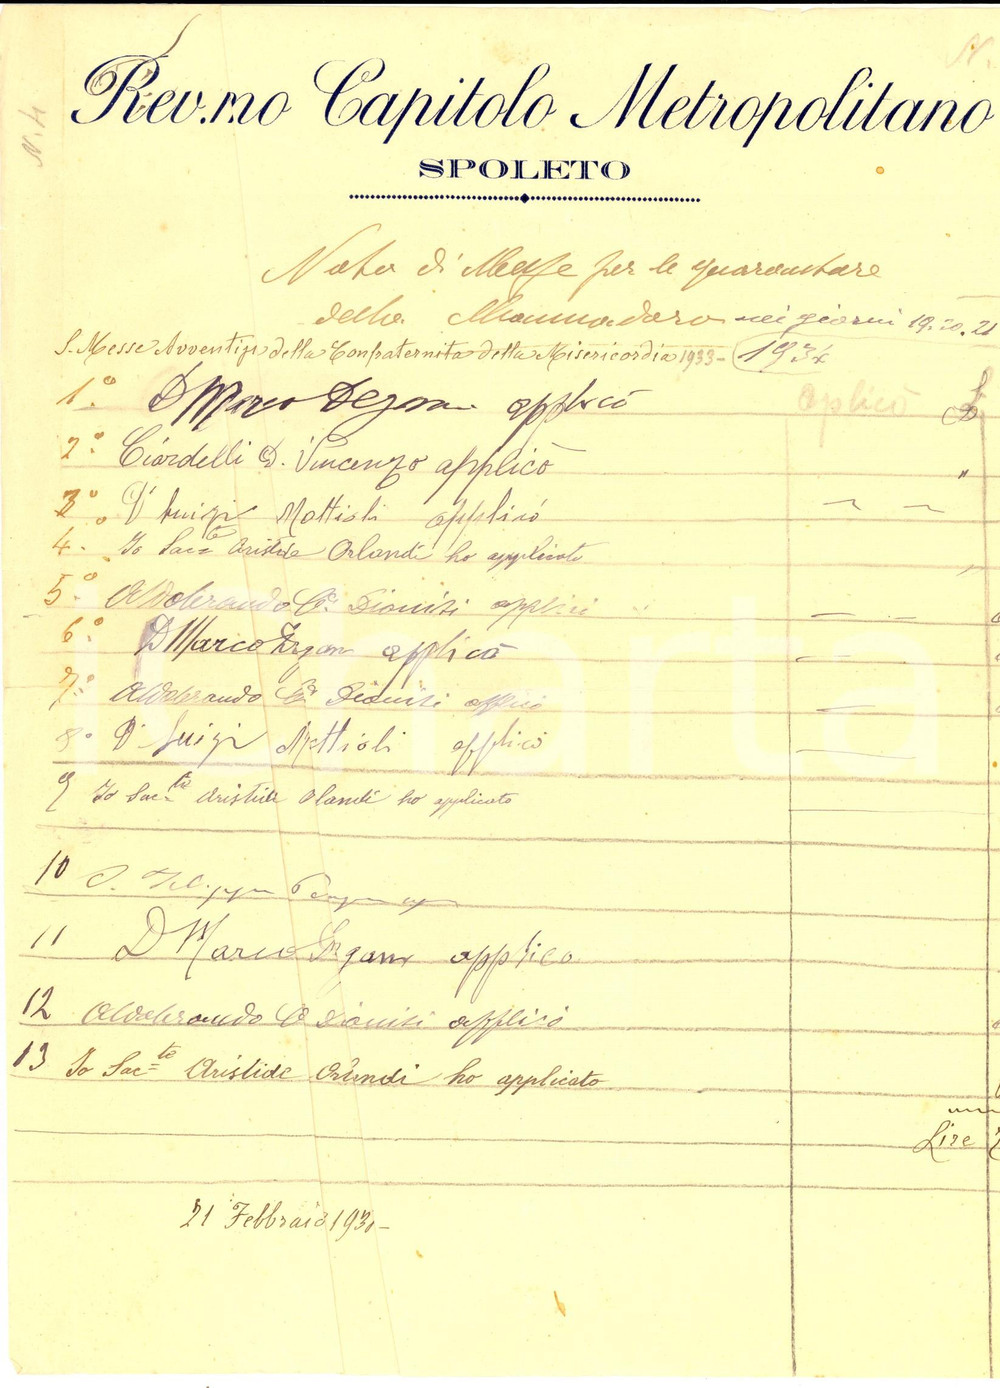 N. 4
N.
Rev.mo Capitolo Metropolitano
SPOLETO
Nota di Messe per le quarantore
della nei giorni 19. 20. 21
S. Messe Avventizi della Confraternita della Misericordia 1933- 1934
1º. D Marco applicò applicò L
2º. Ciardelli D. Vincenzo applicò "
3º. D Luigi Mattioli applicó
4. Io Sacte Aristide Orlandi ho applicato
5º. Aldobrando C. Dionisi applicò
6º. D Marco applicò
7º. Aldobrando C. Dionisi applicò
8º D Luigi Mattioli applicò
9 Io Sacte Aristide Olandi ho applicato
10
11 D Marco applico
12 Aldobrando C Dionisi applicò
13 Io Sacte Aristide Orlandi ho applicato
Lire
21 Febbraio 193